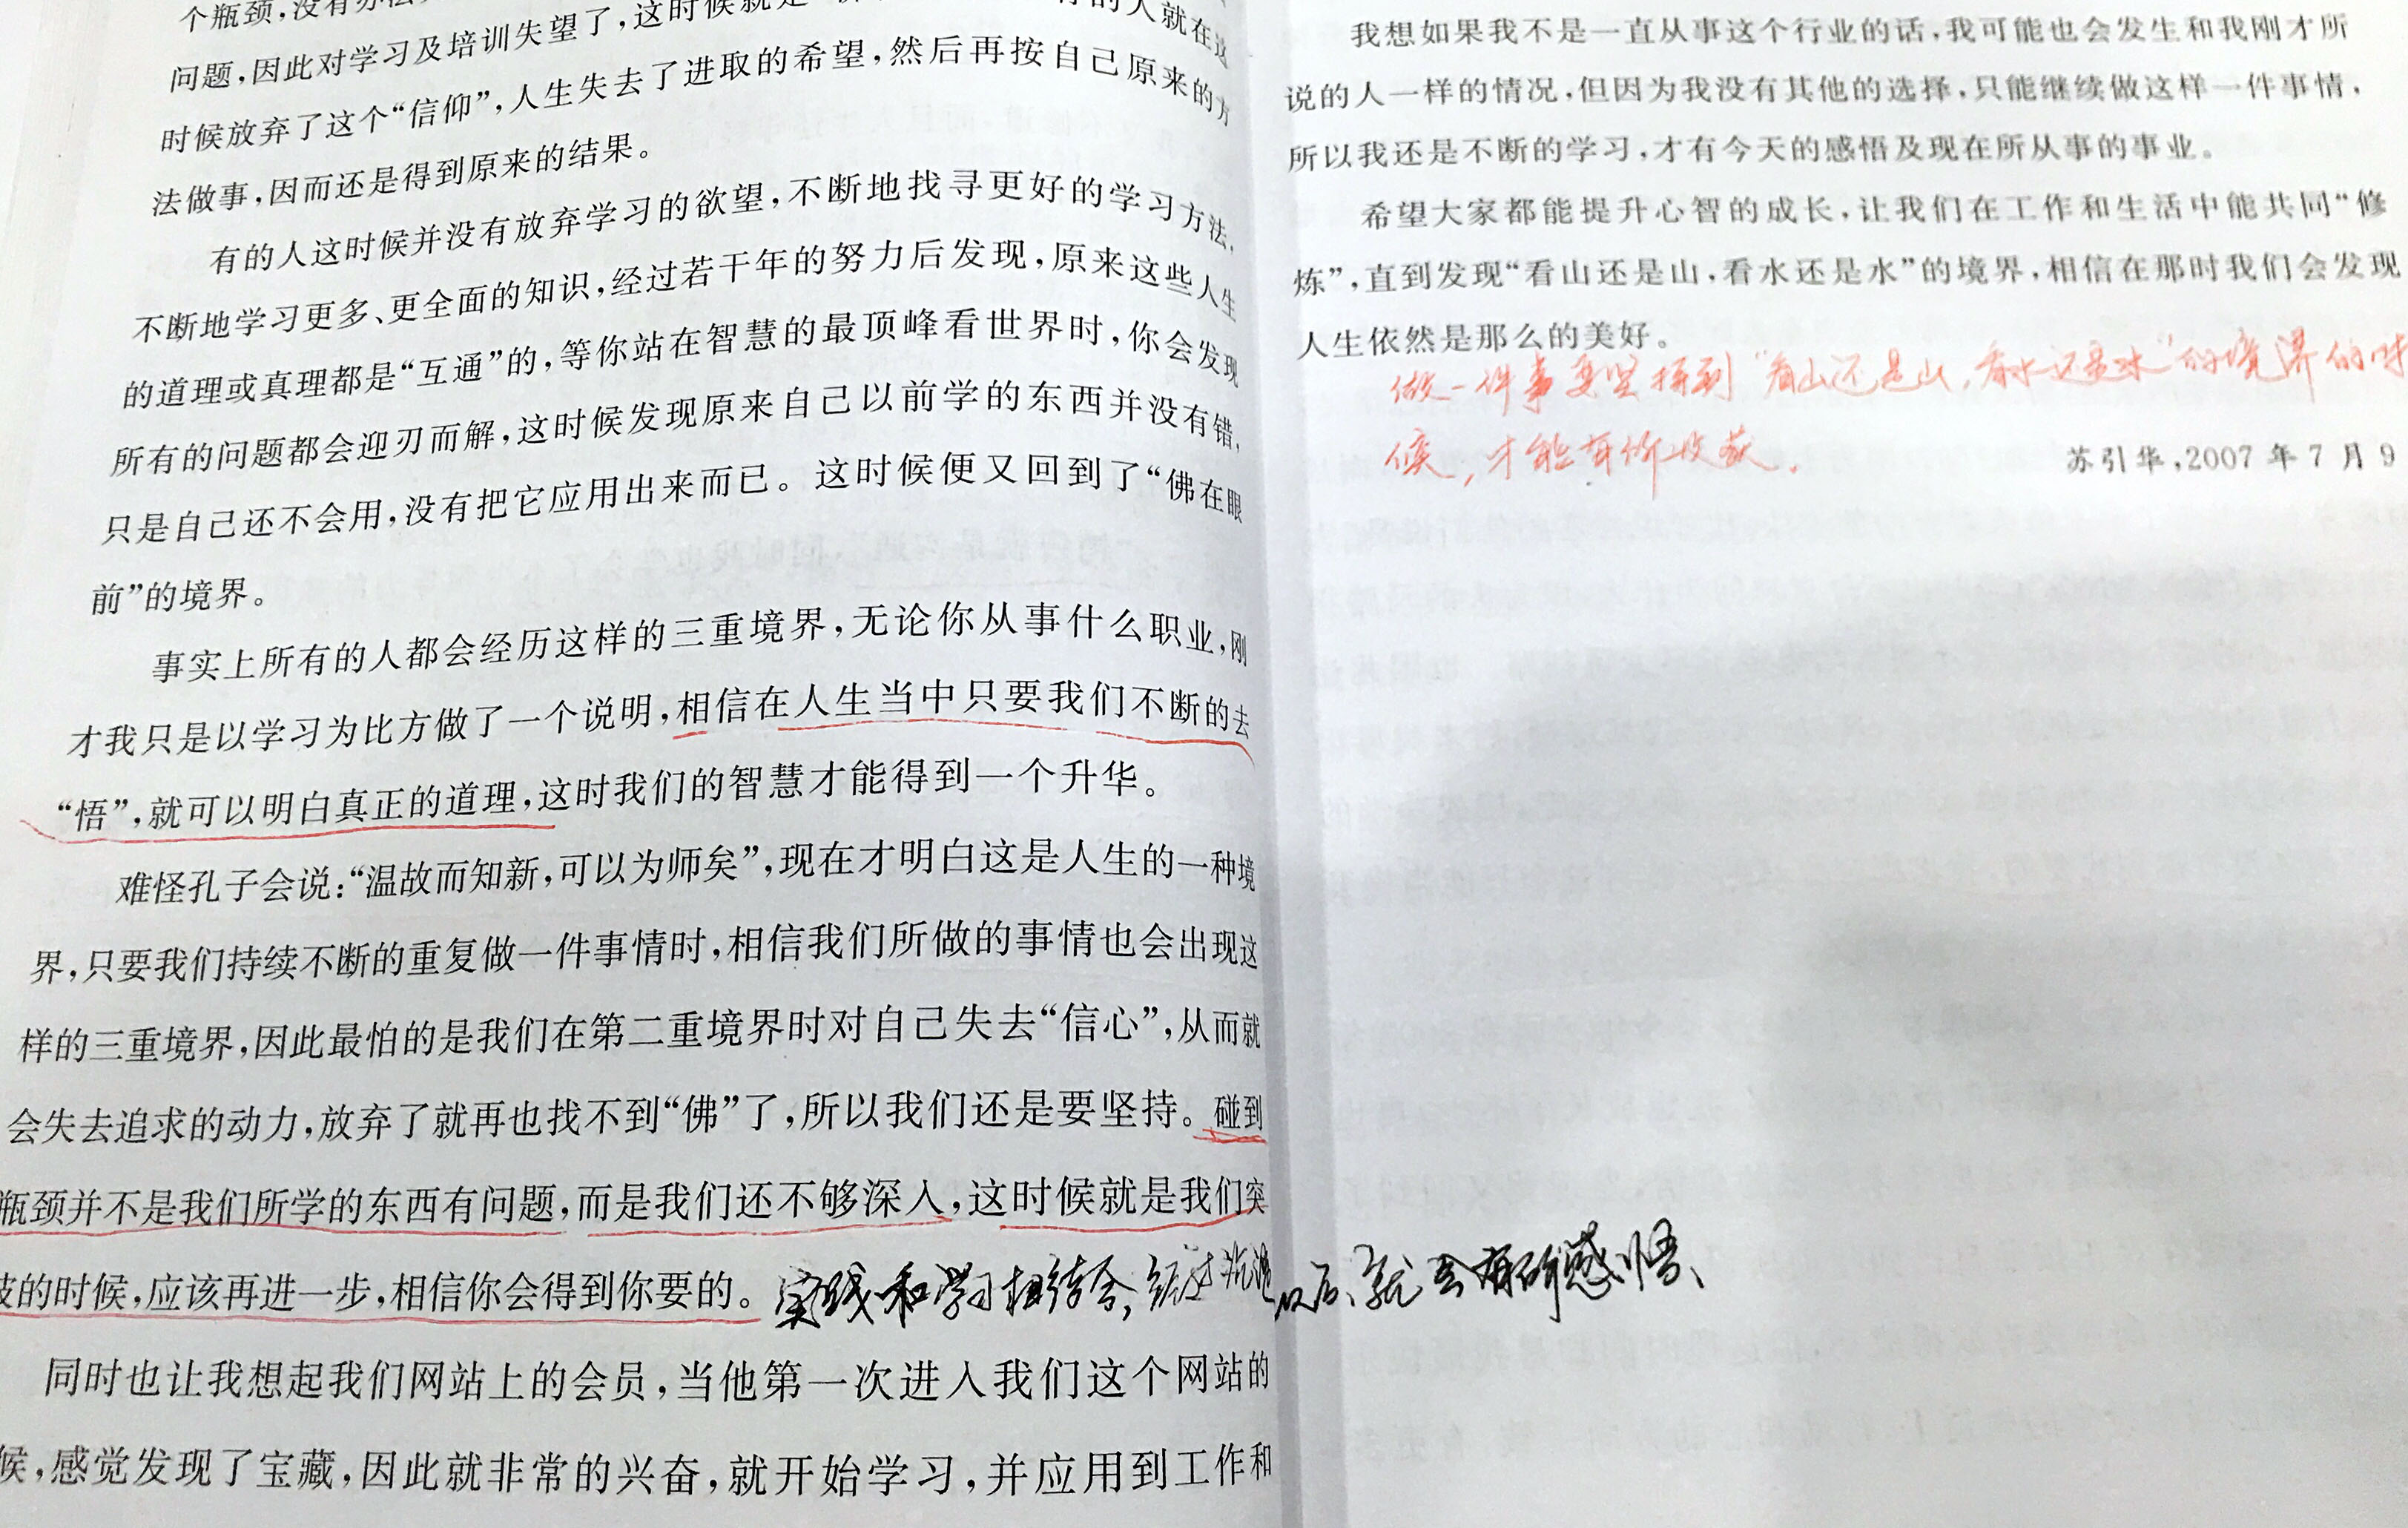 个瓶颈，没有办法
问题，因此对学习及培训失望了，这时候就是 的人就在这
时候放弃了这个“信仰”，人生失去了进取的希望，然后再按自己原来的方
法做事，因而还是得到原来的结果。
有的人这时候并没有放弃学习的欲望，不断地找寻更好的学习方法，
不断地学习更多、更全面的知识，经过若干年的努力后发现，原来这些人生
的道理或真理都是“互通”的，等你站在智慧的最顶峰看世界时，你会发现
所有的问题都会迎刃而解，这时候发现原来自己以前学的东西并没有错，
只是自己还不会用，没有把它应用出来而已。这时候便又回到了“佛在眼
前”的境界。
事实上所有的人都会经历这样的三重境界，无论你从事什么职业，刚
才我只是以学习为比方做了一个说明，相信在人生当中只要我们不断的去
“悟”，就可以明白真正的道理，这时我们的智慧才能得到一个升华。
难怪孔子会说：“温故而知新，可以为师矣”，现在才明白这是人生的一种境
界，只要我们持续不断的重复做一件事情时，相信我们所做的事情也会出现这
样的三重境界，因此最怕的是我们在第二重境界时对自己失去“信心”，从而就
会失去追求的动力，放弃了就再也找不到“佛”了，所以我们还是要坚持。碰到
瓶颈并不是我们所学的东西有问题，而是我们还不够深入，这时候就是我们突
的时候，应该再进一步，相信你会得到你要的。实践和学习相结合，经过沉淀以后、就会有所感悟、
同时也让我想起我们网站上的会员，当他第一次进入我们这个网站的
候，感觉发现了宝藏，因此就非常的兴奋，就开始学习，并应用到工作和
我想如果我不是一直从事这个行业的话，我可能也会发生和我刚才所
说的人一样的情况，但因为我没有其他的选择，只能继续做这样一件事情，
所以我还是不断的学习，才有今天的感悟及现在所从事的事业。
希望大家都能提升心智的成长，让我们在工作和生活中能共同“修
炼”，直到发现“看山还是山，看水还是水”的境界，相信在那时我们会发现
人生依然是那么的美好。
做一件事要坚持到“看山还是山，看水还是水”的境界的时
候，才能有所收获。
苏引华，2007 年 7 月 9